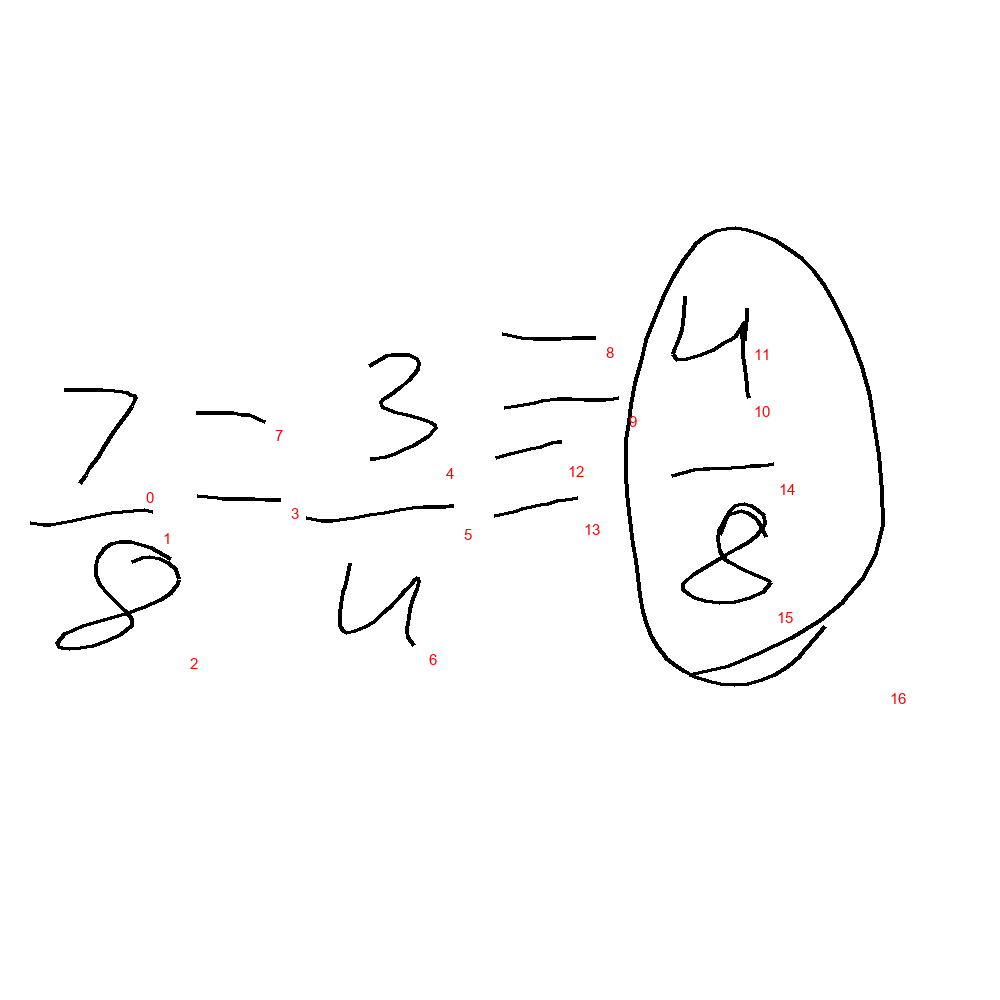 7 - 3 = 4
— - — = —
8 4 8
0
1
2
3
4
5
6
7
8
9
10
11
12
13
14
15
16